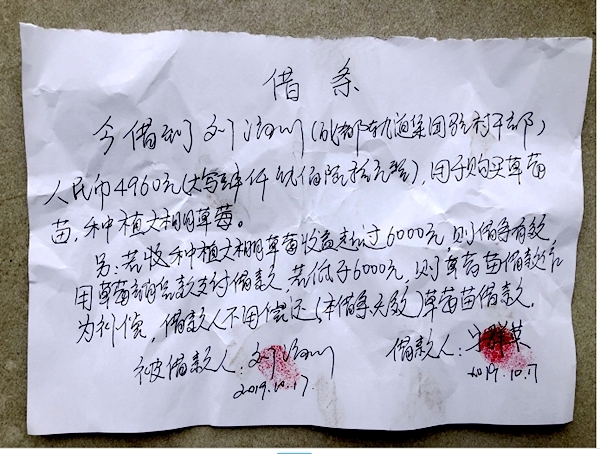 借条
今借到刘治川(成都轨道集团驻村干部)
人民币4960元(大写肆仟玖佰陆拾元整),用于购买草莓
苗,种植大棚草莓。
另:若收种植大棚草莓收益超过6000元,则借条有效,
用草莓销售款支付借款。若低于6000元,则草莓苗借款作
为补偿,借款人不用偿还(本借条失效)草莓苗借款。
被借款人:刘治川 借款人:
2019.10.17. 2019.10.7